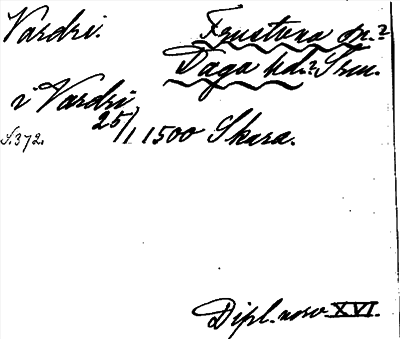 Vardri. Frustuna sn.?
Daga hd.? Srm.
i Vardri
25/1 1500 Skara.
S.372.
Dipl. norv. XVI.